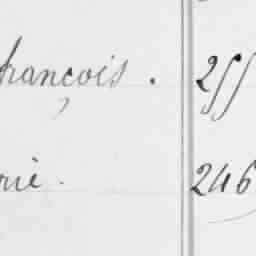 françois. 255
rie. 246